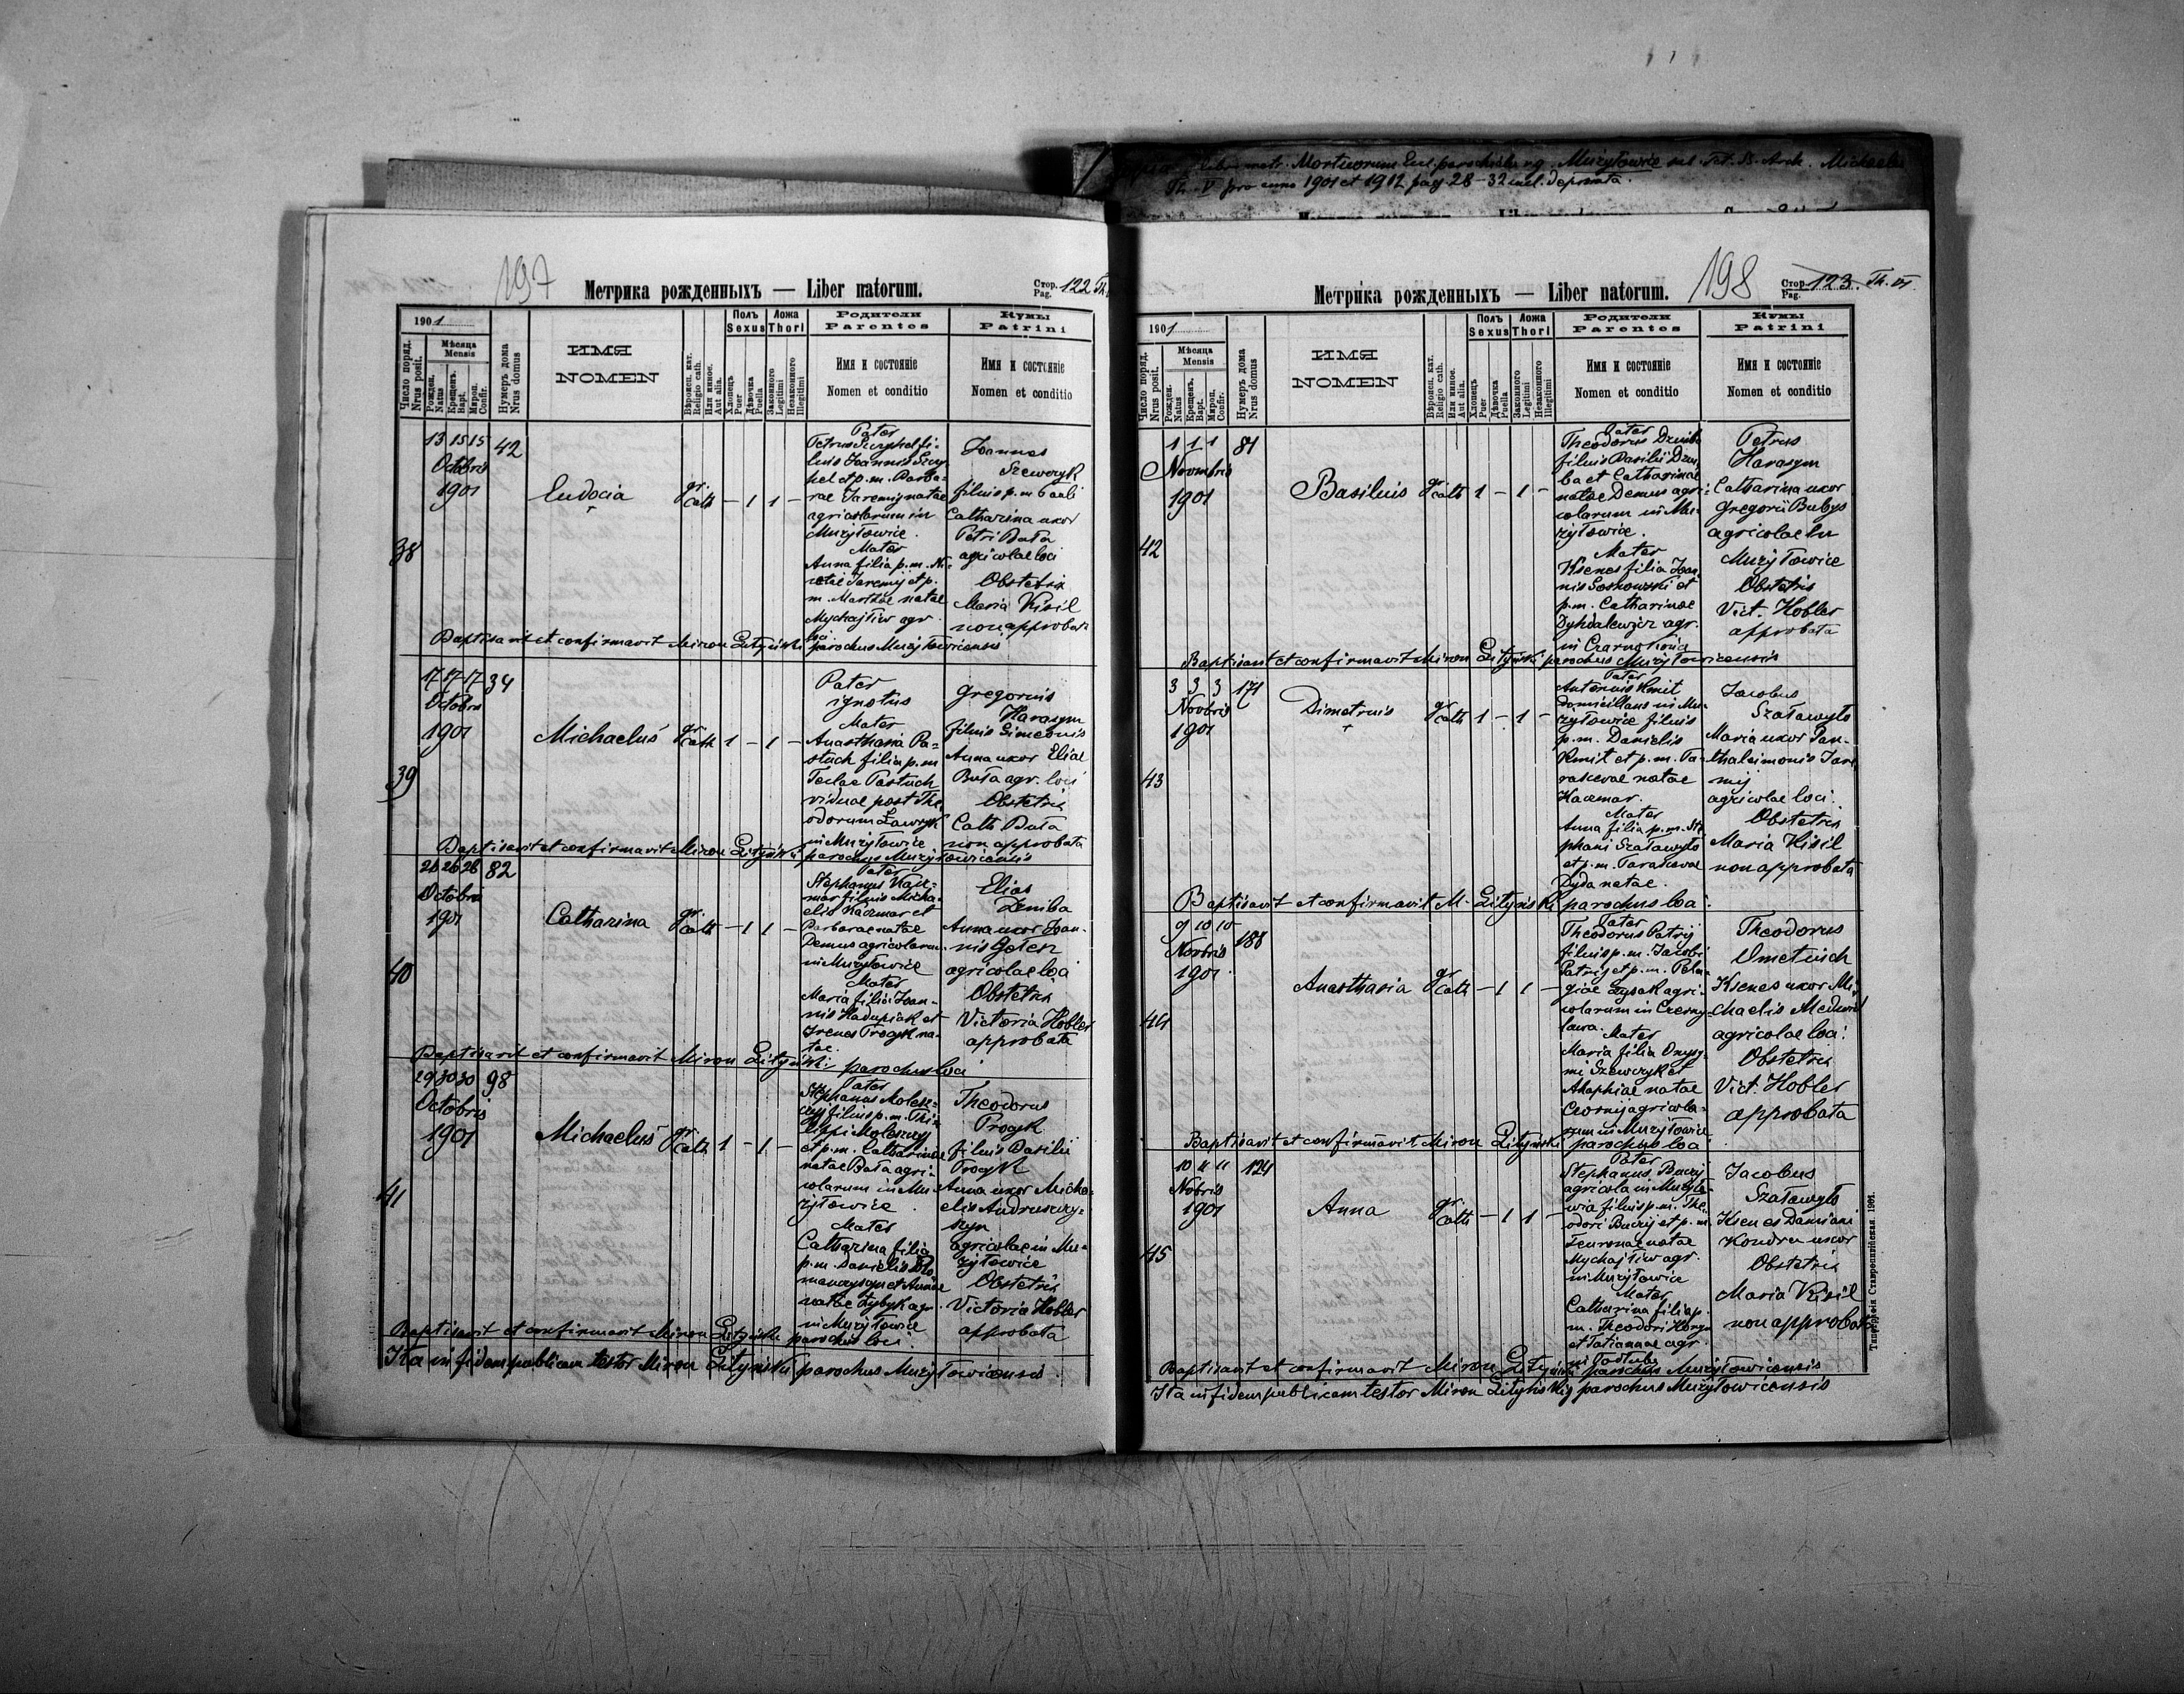 Libri metr. Mortuorum Eccl. parochialis rg. Mużyłowice sub. tit. S. Arch. Michaelis
Th. V pro anno 1901 et 1912 pag. 28-32 incl. deposita.
197
Метрика рожденныхъ — Liber natorum.
Стор. Pag. 122 Th.
1901
Число поряд. Nrus posit.
Мѣсяца Mensis
Рожден. Natus
Крещенъ. Bapt.
Мѵроп. Confir.
Нумеръ дома Nrus domus
ИМЯ
NOMEN
Вѣроисп. кат. Religio cath.
Или инное. Aut alia.
Полъ Sexus
Хлопецъ Puer
Дѣвочка Puella
Ложа Thori
Законного Legitimi
Незаконного Illegitimi
Родители
Parentes
Имя и состоянiе
Nomen et conditio
Кумы
Patrini
Имя и состоянiе
Nomen et conditio
38
13 15 15
Octobris
1901
42
Eudocia
gr. cath
– 1 1 –
Pater
luis Joannis
et p.m. Barba-
rae Jaremij natae
agricolarum in
Mużyłowice.
Mater
Anna filia p.m. Ni-
cetae Jaremij et p.
m. Marthae natae
Mychajliw agr.
loci
Joannes
Szewczyk
filius p.m. Pauli
Catharina uxor
Petri Buła
agricolae loci
Obstetrix
Maria Kisil
non approbata
Baptisavit et confirmavit Miron Lityński parochus Mużyłowicensis
39
17 17 17
Octobris
1901
34
Michaelus
gr. cath
1 – 1 –
Pater
ignotus
Mater
Anasthasia Pa-
stuch filia p.m.
Teclae Pastuch
viduae post The-
odorum Ławryk
in Mużyłowice
Gregorius
Harasym
filius Simeonis
Anna uxor Eliae
Buła agr. loci
Obstetrix
Cath Buła
non approbata
Baptisavit et confirmavit Miron Lityński parochus Mużyłowicensis
40
26 26 26
Octobris
1901
82
Catharina
gr. cath
– 1 1 –
Pater
Stephanus Kacz-
mar filius Micha-
elis Kaczmar et
Barbarae natae
Demus agricolarum
in Mużyłowice
Mater
Maria filia Joan-
nis Hadupiak et
Irenes Procyk na-
tae.
Elias
Dziuba
Anna uxor Joan-
nis Golen
agricolae loci
Obstetrix
Victoria Kobler
approbata
Baptisavit et confirmavit Miron Lityński parochus loci
41
29 30 30
Octobris
1901
98
Michaelus
gr. cath
1 – 1 –
Pater
Stephanus Molesz-
czyj filius p.m. Phi-
lippi Moleszczyj
et p.m. Catharinae
natae Buła agri-
colarum in Mu-
żyłowice.
Mater
Catharina filia
p.m. Danielis
et Annae
natae Zybyk agr.
in Mużyłowice
Theodorus
Procyk
filius Basilii
Procyk
Anna uxor Micha-
elis Andruszczy-
szyn
agricolae in Mu-
żyłowice
Obstetrix
Victoria Kobler
approbata
Baptisavit et confirmavit Miron Lityński parochus loci.
Ita in fidem publicam testor Miron Lityński parochus Mużyłowicensis.
198
Метрика рожденныхъ — Liber natorum.
Стор. Pag. 123. Th. VI.
1901
Число поряд. Nrus posit.
Мѣсяца Mensis
Рожден. Natus
Крещенъ. Bapt.
Мѵроп. Confir.
Нумеръ дома Nrus domus
ИМЯ
NOMEN
Вѣроисп. кат. Religio cath.
Или инное. Aut alia.
Полъ Sexus
Хлопецъ Puer
Дѣвочка Puella
Ложа Thori
Законного Legitimi
Незаконного Illegitimi
Родители
Parentes
Имя и состоянiе
Nomen et conditio
Кумы
Patrini
Имя и состоянiе
Nomen et conditio
42
1 1 1
Novembris
1901
81
Basilius
gr. cath
1 – 1 –
Pater
Theodorus Dziuba
filius Basilii Dziu-
ba et Catharinae
natae Demus agri-
colarum in Mu-
żyłowice.
Mater
Ksenes filia Joan-
nis Soskowski et
p.m. Catharinae
Dyhdalewicz agr.
in
Petrus
Harasym
Catharina uxor
Gregorii Bubys
agricolae in
Mużyłowice
Obstetrix
Vict. Kobler
approbata
Baptisavit et confirmavit Miron Lityński parochus Mużyłowicensis
43
3 3 3
Novbris
1901
171
Dimetrius
gr. cath
1 – 1 –
Pater
Antonius Kmit
domicilians in Mu-
żyłowice filius
p.m. Danielis
Kmit et p.m. Pa-
rascevae natae
Kaczmar.
Mater
Anna filia p.m. Ste-
phani Szaławyło
et p.m. Parascevae
Dyda natae.
Jacobus
Szaławyło
Maria uxor Pan-
thaleimonis Jare-
mij
agricolae loci.
Obstetrix
Maria Kisil
non approbata
Baptisavit et confirmavit M. Lityński parochus loci.
44
9 10 10
Novbris
1901
188
Anasthasia
gr. cath
– 1 1 –
Pater
Theodorus Patryj
filius p.m. Jacobi
Patryj et p.m. Pela-
giae Łysak agri-
colarum in Czerny-
lawa.
Mater
Maria filia Onysy-
mi Szewczyk et
Ahaphiae natae
Czornij agricola-
rum in Mużyłowice
Theodorus
Dmetrisch
Ksenes uxor Mi-
chaelis Medwid
agricolae loci.
Obstetrix
Vict. Kobler
approbata
Baptisavit et confirmavit Miron Lityński parochus loci
45
10 11 11
Nobris
1901
124
Anna
gr. cath
– 1 1 –
Pater
Stephanus Buczij
agricola in Mużyło-
wice filius p.m. The-
odori Buczij et p.m.
Feuronae natae
Mychajliw agr.
in Mużyłowice
Mater
Catharina filia p.
m. Theodori
et Tatiannae agr.
in Podłuby
Jacobus
Szaławyło
Ksenes Damiani
Kondra uxor
Obstetrix
Maria Kisil
non approbata
Baptisavit et confirmavit Miron Lityński parochus Mużyłowicensis
Ita in fidem publicam testor Miron Lityński parochus Mużyłowicensis
Типографія Ставропигійская. 1901.